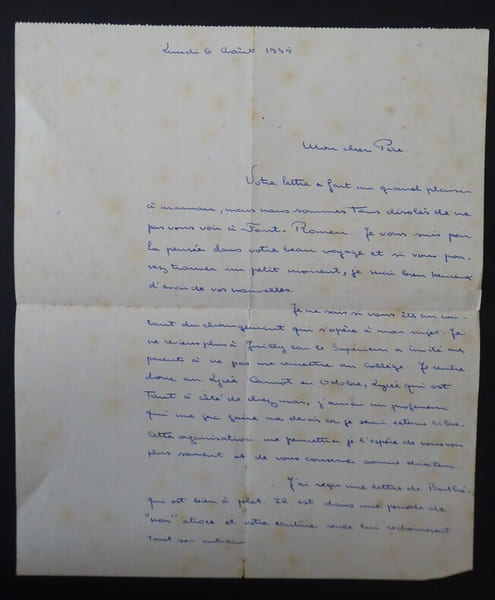 Lundi 6 Août 1935
Mon cher Père
Votre lettre a fait un grand plaisir
à maman, mais nous sommes tous désolés de ne
pas vous voir à Font-Romeu. Je vous suis par
la pensée dans votre beau voyage et si vous pou-
vez trouver un petit moment, je serai bien heureux
d'avoir de vos nouvelles.
Je ne sais si vous êtes au cou-
rant du changement qui s'opère à mon sujet. Je
ne reviens plus à Juilly car le Supérieur a invité mes
parents à ne pas me remettre au collège. Je rentre
donc au Lycée Carnot en Octobre, Lycée qui est
tout à côté de chez moi, j'aurai un professeur
qui me fera faire mes devoirs car je serai externe libre.
Cette organisation me permettra je l'espère de vous voir
plus souvent et de vous conserver comme directeur.
J'ai reçu une lettre de
qui est bien à plat. Il est dans une période de
"noir" atroce et votre écriture seule lui redonnerait
tout son entrain